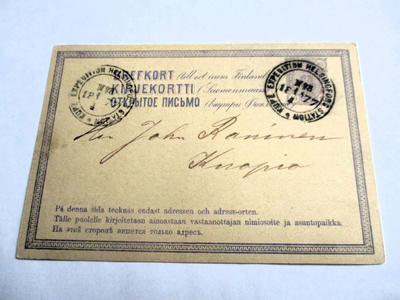 BREFKORT (till ort inom Finland)
KIRJEKORTTI (Suomenmaassa
ОТКРЫТОЕ ПИСЬМО
KUPÉ EXPEDITION HELSINGFORS STATION
KUPÉ EXPEDITION HELSINGFORS STATION
77
Herr John Raninen
Kuopio
På denna sida tecknas endast adressen och adress-orten.
Tälle puolelle kirjoitetaan ainoastaan vastaanottajan nimiosoite ja asuntopaikka.
На этой сторонѣ пишется только адресъ.